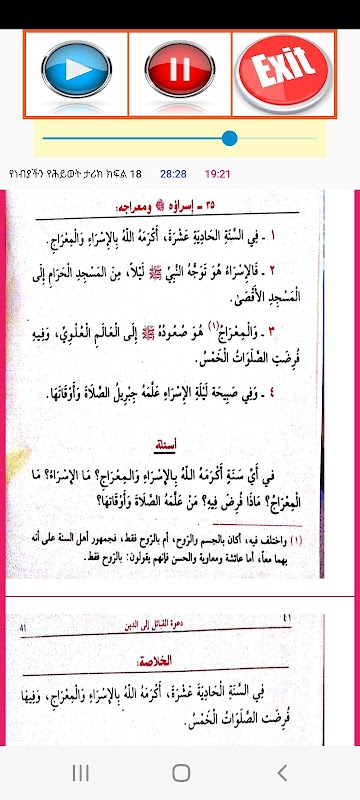 Exit
የነብያችን የሕይወት ታሪክ ክፍል 18 28:28 19:21
٣٥ - إسراؤه ﷺ ومعراجه:
١ - فِي السَّنَةِ الحَادِيَةَ عَشْرَةَ، أَكْرَمَهُ اللَّهُ بِالإِسْرَاءِ وَالْمِعْرَاجِ.
٢ - فَالإِسْرَاءُ هُوَ تَوَجُّهُ النَّبِيِّ ﷺ لَيْلاً، مِنَ المَسْجِدِ الْحَرَامِ إِلَى
الْمَسْجِدِ الأَقْصَىٰ.
٣ - وَالْمِعْرَاجُ (١) هُوَ صُعُودُهُ ﷺ إِلَى الْعَالَمِ الْعُلْوِيِّ، وَفِيهِ
فُرِضَتِ الصَّلَوَاتُ الْخَمْسُ.
٤ - وَفِي صَبِيحَةِ لَيْلَةِ الإِسْرَاءِ عَلَّمَهُ جِبْرِيلُ الصَّلَاةَ وَأَوْقَاتَهَا.
أسئلة
فِي أَيِّ سَنَةٍ أَكْرَمَهُ اللَّهُ بِالإِسْرَاءِ وَالمِعْرَاجِ؟ مَا الإِسْرَاءُ؟ مَا
الْمِعْرَاجُ؟ مَاذَا فُرِضَ فِيهِ؟ مَنْ عَلَّمَهُ الصَّلَاةَ وَأَوْقَاتَهَا؟
(١) واختلف فيه، أكان بالجسم والرّوح، أم بالرّوح فقط، فجمهور أهل السنة على أنه
بهما معاً، أما عائشة ومعاوية والحسن فإنهم يقولون: بالرّوح فقط.
٤١ دعوة القبائل إلى الدين 41
الخلاصة:
فِي السَّنَةِ الْحَادِيَةَ عَشْرَةَ، أَكْرَمَهُ اللَّهُ بِالإِسْرَاءِ وَالْمِعْرَاجِ، وَفِيهَا
فُرِضَتِ الصَّلَوَاتُ الْخَمْسُ.